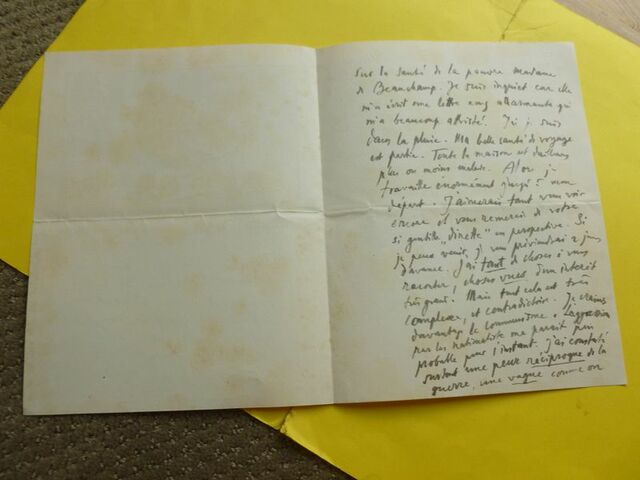 sur la santé de la pauvre madame
de Beauchamp. Je suis inquiet car elle
m'a écrit une lettre assez allarmante qui
m'a beaucoup attristé. Ici je suis
dans la pluie. Ma belle santé de voyage
est partie. Toute la maison est d'ailleurs
plus ou moins malade. Alors je
travaille énormément jusqu'à mon
départ. J'aimerais tant vous voir
encore et vous remercier de votre
si gentille "dinette" en perspective. Si
je peux venir, je vous préviendrai 2 jours
d'avance. J'ai tant de choses à vous
raconter, choses vues d'un intérêt
très grand. Mais tout cela est très
complexe, et contradictoire. Je crains
davantage le communisme. L'aggression
par les nationalistes me parait peu
probable pour l'instant. J'ai constaté
surtout une peur réciproque de la
guerre, une vague comme on